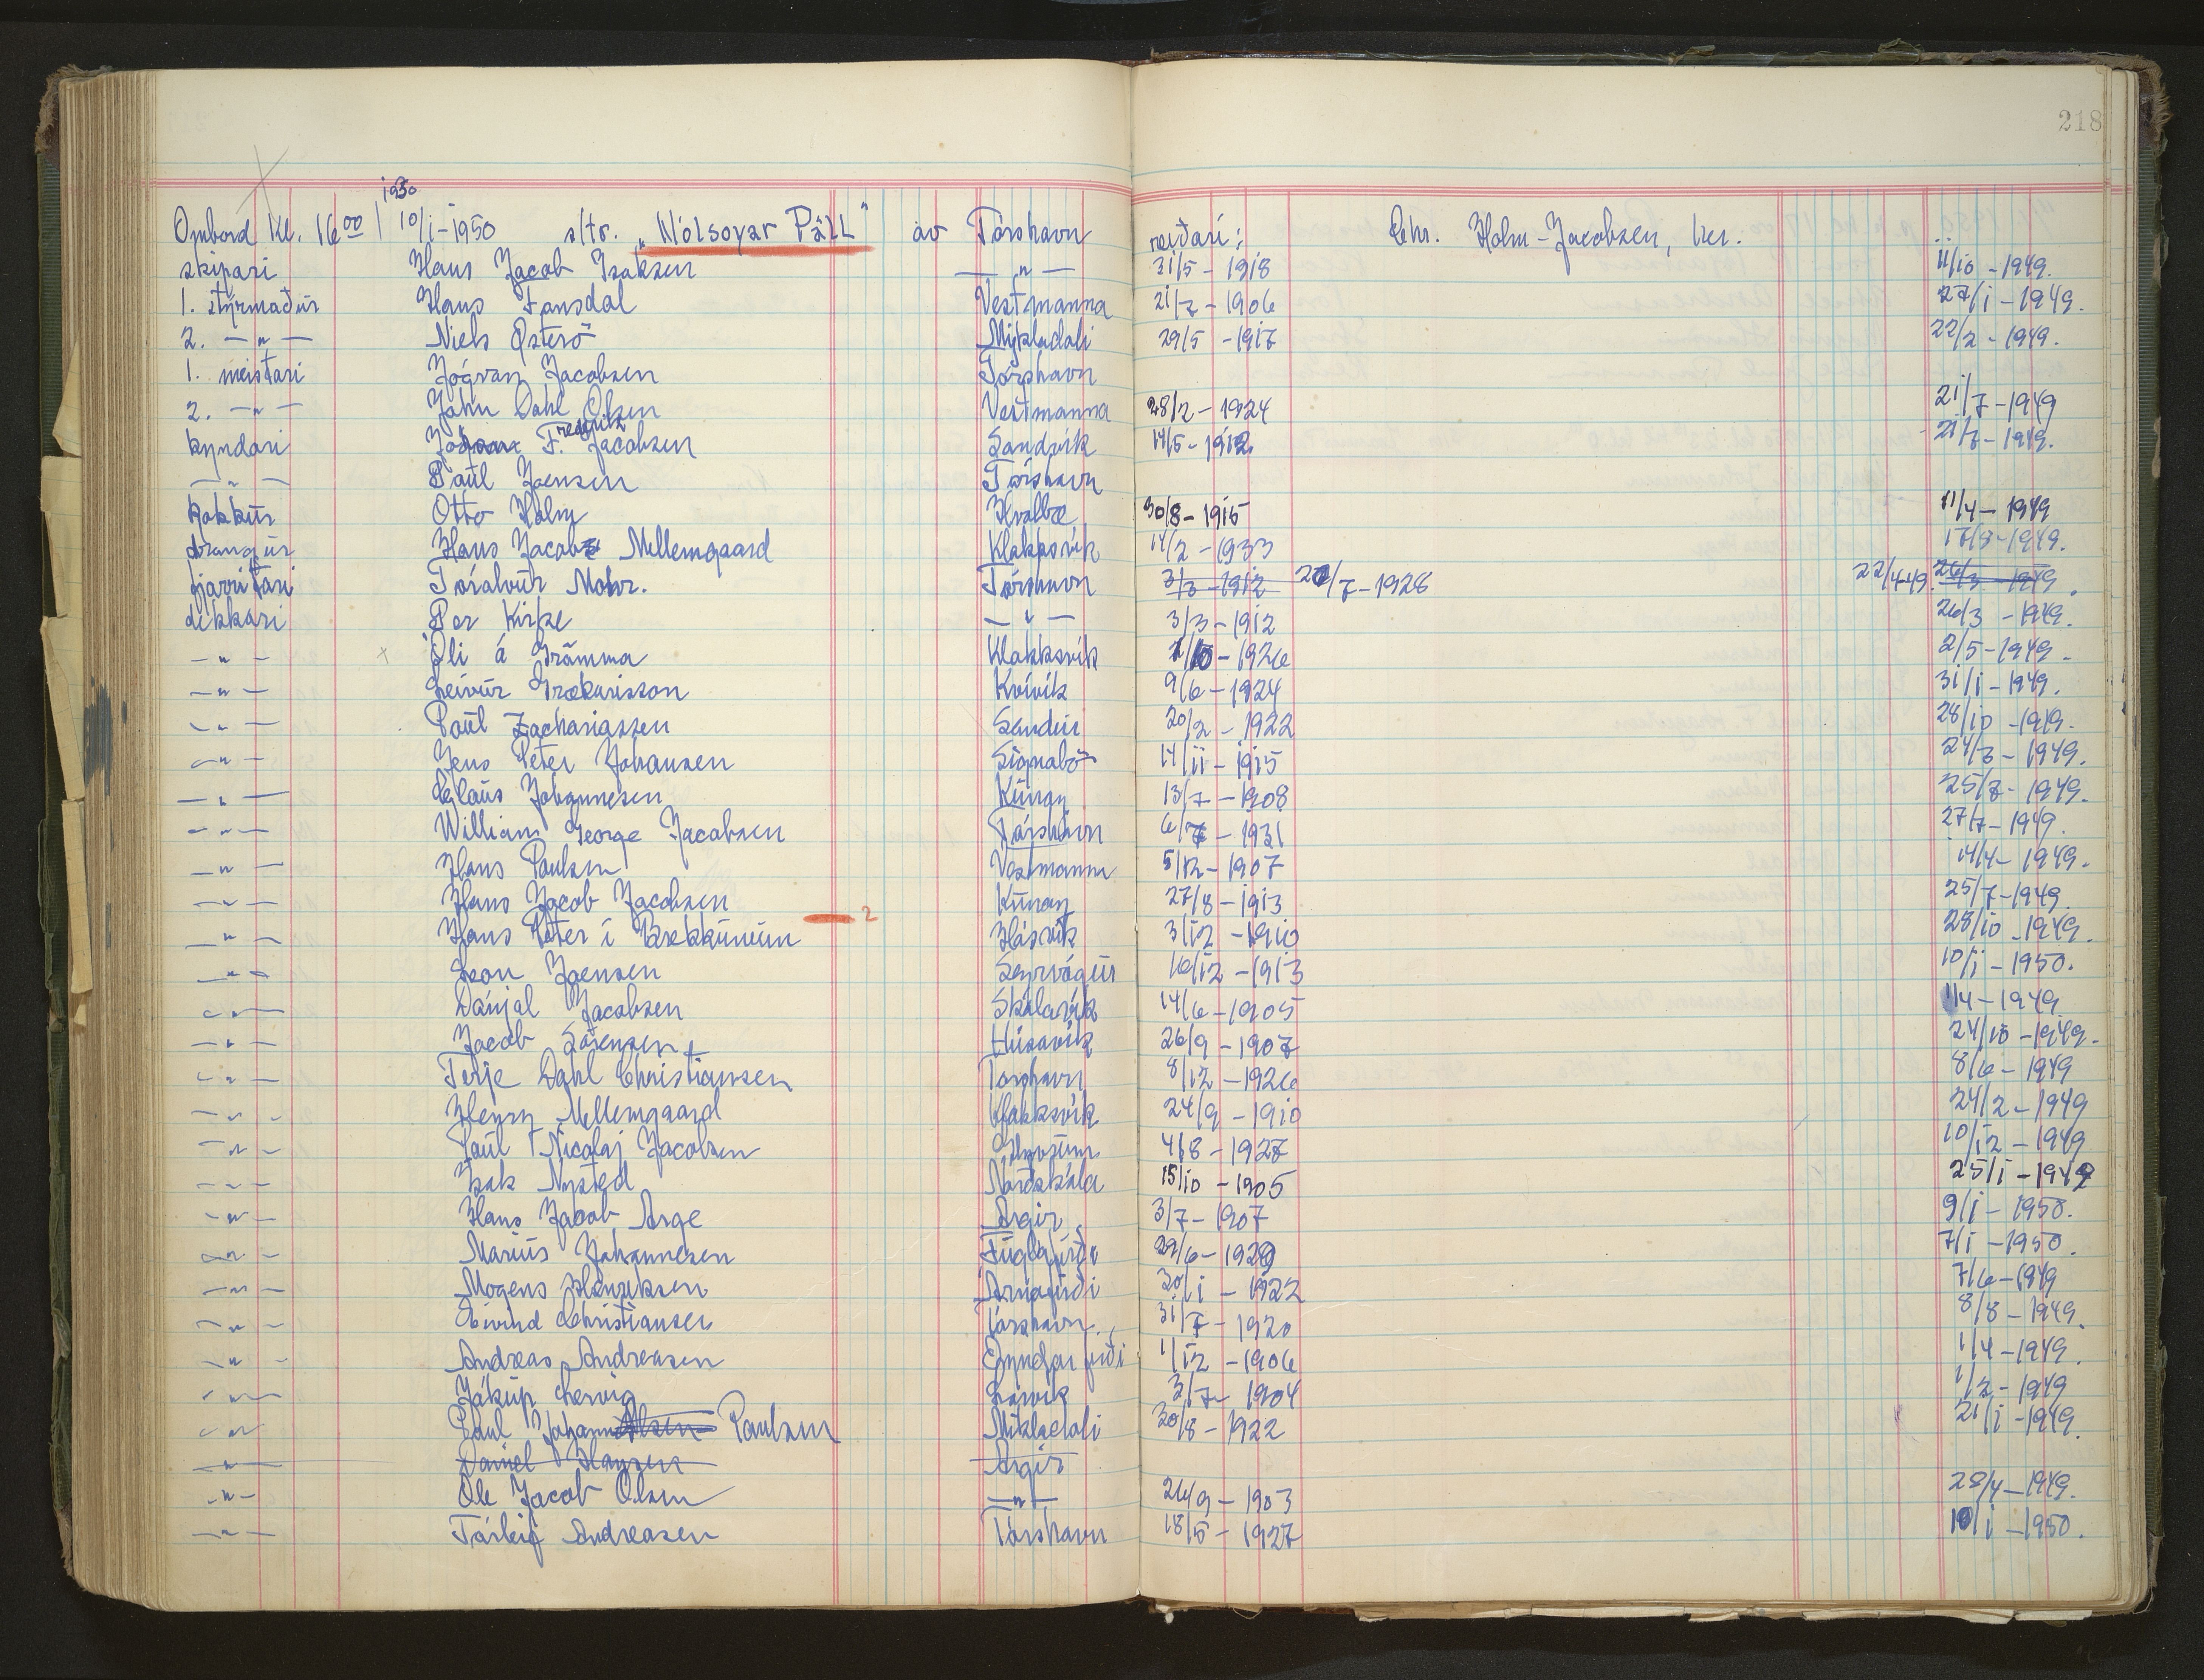 218
1950
Ombord Kl. 16 00 | 10/1-1950 s/tr. "Nólsoyar Páll" av Tórshavn reiðari: Chr. Holm-Jacobsen, kn.
skipari Hans Jacob Isaksen —"— 31/5-1918 11/10-1949.
1. stýrmaður Hans Fansdal Vestmanna 21/7-1906 27/1-1949.
2. —"— Niels Østerö Mykladali 29/5-1917 22/2-1949.
1. meistari Jógvan Jacobsen Tórshavn
2. —"— John Dahl Olsen Vestmanna 28/2-1924 21/7-1949
kyndari F. Fredrik Jacobsen Sandvík 14/5-1912 21/7-1949.
—"— Paul Joensen Tórshavn
kokkur Otto Holm Hvalba 30/8-1915 11/4-1949
drongur Hans Jacob Mellemgaard Klakksvík 14/2-1933 17/8-1949.
fjarritari Tóralvur Mohr. Tórshavn 3/3-1912 20/7-1928 22/4-49. 26/3-1949.
dekkari Per Kirke —"— 3/3-1912 26/3-1949.
—"— x Óli á Grömma Klakksvík 1/10-1926 2/5-1949.
—"— Leivur Grækarisson Kvívík 9/6-1924 31/1-1949.
—"— Poul Zachariassen Sandur 20/2-1922 28/10-1949.
—"— Jens Peter Johansen Signabö 14/11-1915 24/3-1949.
—"— Eglaus Johannesen Kunoy 13/7-1908 25/7-1949.
—"— William George Jacobsen Tórshavn 6/7-1931 27/7-1949.
—"— Hans Paulsen Vestmanna 5/12-1907 14/4-1949.
—"— Hans Jacob Jacobsen Kunoy 27/8-1913 25/7-1949.
2
—"— Hans Peter í Brekkunum Hósvík 3/12-1910 28/10-1949.
—"— Leon Joensen Sörvágur 16/12-1913 10/1-1950.
—"— Dánjal Jacobsen Skálavík 14/6-1905 1/4-1949
—"— Jacob Sörensen Húsavík 26/9-1907 24/10-1949.
—"— Terje Dahl Christiansen Tórshavn 8/12-1926 8/6-1949
—"— Henry Mellemgaard Klakksvík 24/9-1910 24/2-1949
—"— Poul Nicolaj Jacobsen 4/8-1927 10/12-1949
—"— Isak Nysted Norðskála 15/10-1905 25/1-1949
—"— Hans Jacob Arge Argir 3/7-1907 9/1-1950.
—"— Marius Johannesen Fuglafirði 29/6-1929 7/1-1950.
—"— Mogens Henriksen Árnafirði 30/1-1922 7/6-1949
—"— Eivind Christiansen Tórshavn 31/7-1920 8/8-1949.
—"— Andreas Andreasen Oyndarfirði 1/12-1906 1/4-1949.
—"— Jákup Lervig Leirvík 3/7-1904 1/2-1949
—"— Poul Johan Paulsen Mikladali 30/8-1922 21/1-1949.
—"— Daniel Hansen Argir
—"— Ole Jacob Olsen —"— 26/9-1903 28/4-1949.
—"— Tórleif Andreasen Tórshavn 18/5-1927 10/1-1950.